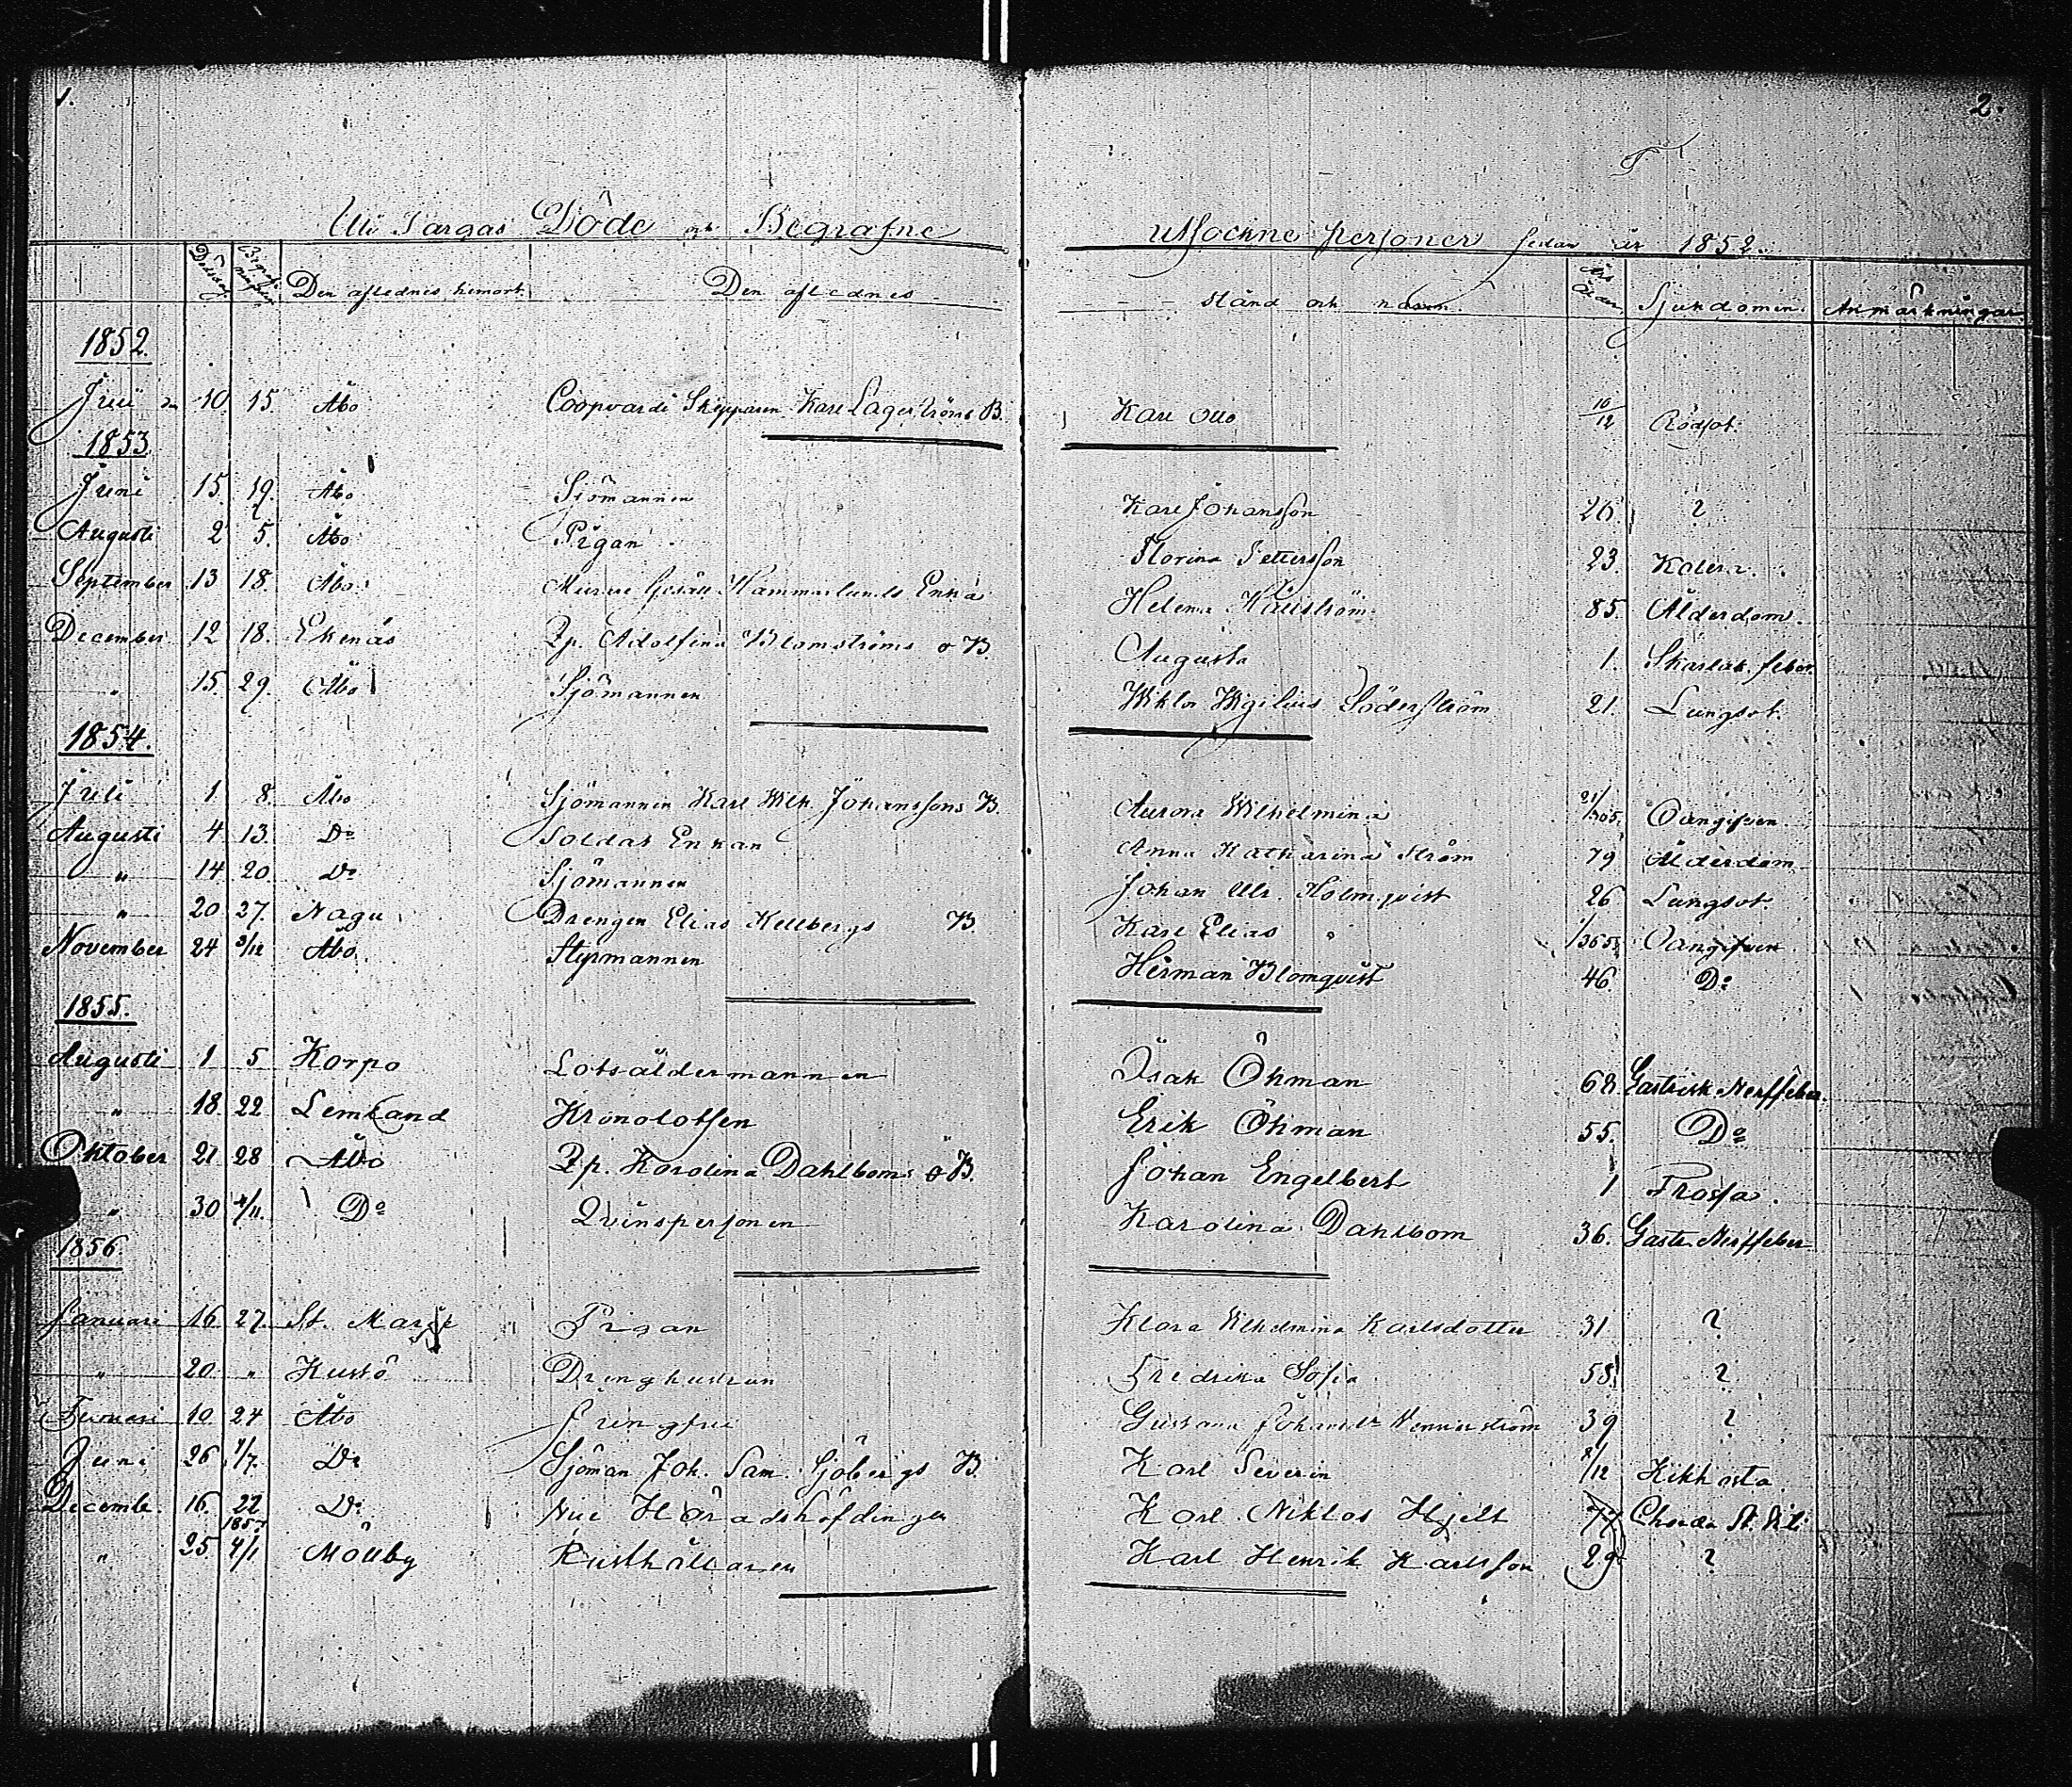 1. 2.
Uti Pargas Döde och Begrafne utsockne personer sedan år 1852.
Dödsdag Begrafningsdag Den aflednes hemort Den aflednes stånd och namn. Års ålder Sjukdomen. Anmärkningar
1852.
Juli 10 15 Åbo Coopvardi Skepparen Karl Lagerströms B. Karl Otto 10/12 Rödsot.
1853
Juni 15 19. Åbo Sjömannen Karl Johansson 26. ?
Augusti 2 5. Åbo Pigan Florina Pettersson 23. Kolera.
September 13 18. Åbo Murare Gesäll Hammarlunds Enka Helena Hällström 85. Ålderdom.
December 12 18. Ekenäs Qp. Adolfina Blomströms o B. Augusta 1. Skarlak. feber.
" 15. 29. Åbo Sjömannen Wiktor Wigilius Söderström 21. Lungsot.
1854.
Juli 1 8. Åbo Sjömannen Karl Wilh. Johanssons B. Aurora Wilhelmina 21/365. Oangifven.
Augusti 4 13. Do Soldat Enkan Anna Katharina Ström 79 Ålderdom
" 14 20. Do Sjömannen Johan Ulr. Holmqvist 26 Lungsot.
" 20 27. Nagu Drengen Elias Kellbergs B. Karl Elias 1/365. Oangifven
November 24 3/12 Åbo Styrmannen Herman Blomqvist 46. Do
1855.
Augusti 1 5 Korpo Lotsåldermannen Isak Öhman 68. Gastrisk Nerffeber.
" 18 22 Lemland Kronolotsen Erik Öhman 55. Do
Oktober 21 28 Åbo Qp. Karolina Dahlboms o B. Johan Engelbert 1 Frossa.
" 30 4/11. Do Qvinspersonen Karolina Dahlbom 36. Gastr. Nerffeber
1856.
Januari 16 27. St. Marie Pigan Klara Wilhelmina Karlsdotter 31 ?
" 20. " Kustö Drenghustrun Fredrika Sofia 58. ?
Februari 10. 24 Åbo Jungfru Gustava Johanna Wennerström 39 ?
Juni 26 1/7. Do Sjöman Joh. Sam. Sjöbergs B. Karl Severin 8/12 Kikhosta
Decemb. 16. 22 Do Häradshöfdingen Karl Niklas Hjelt 77 Chorda St. Viti
" 25. 1857 4/1 Mölby Rusthållaren Karl Henrik Karlsson 29. ?